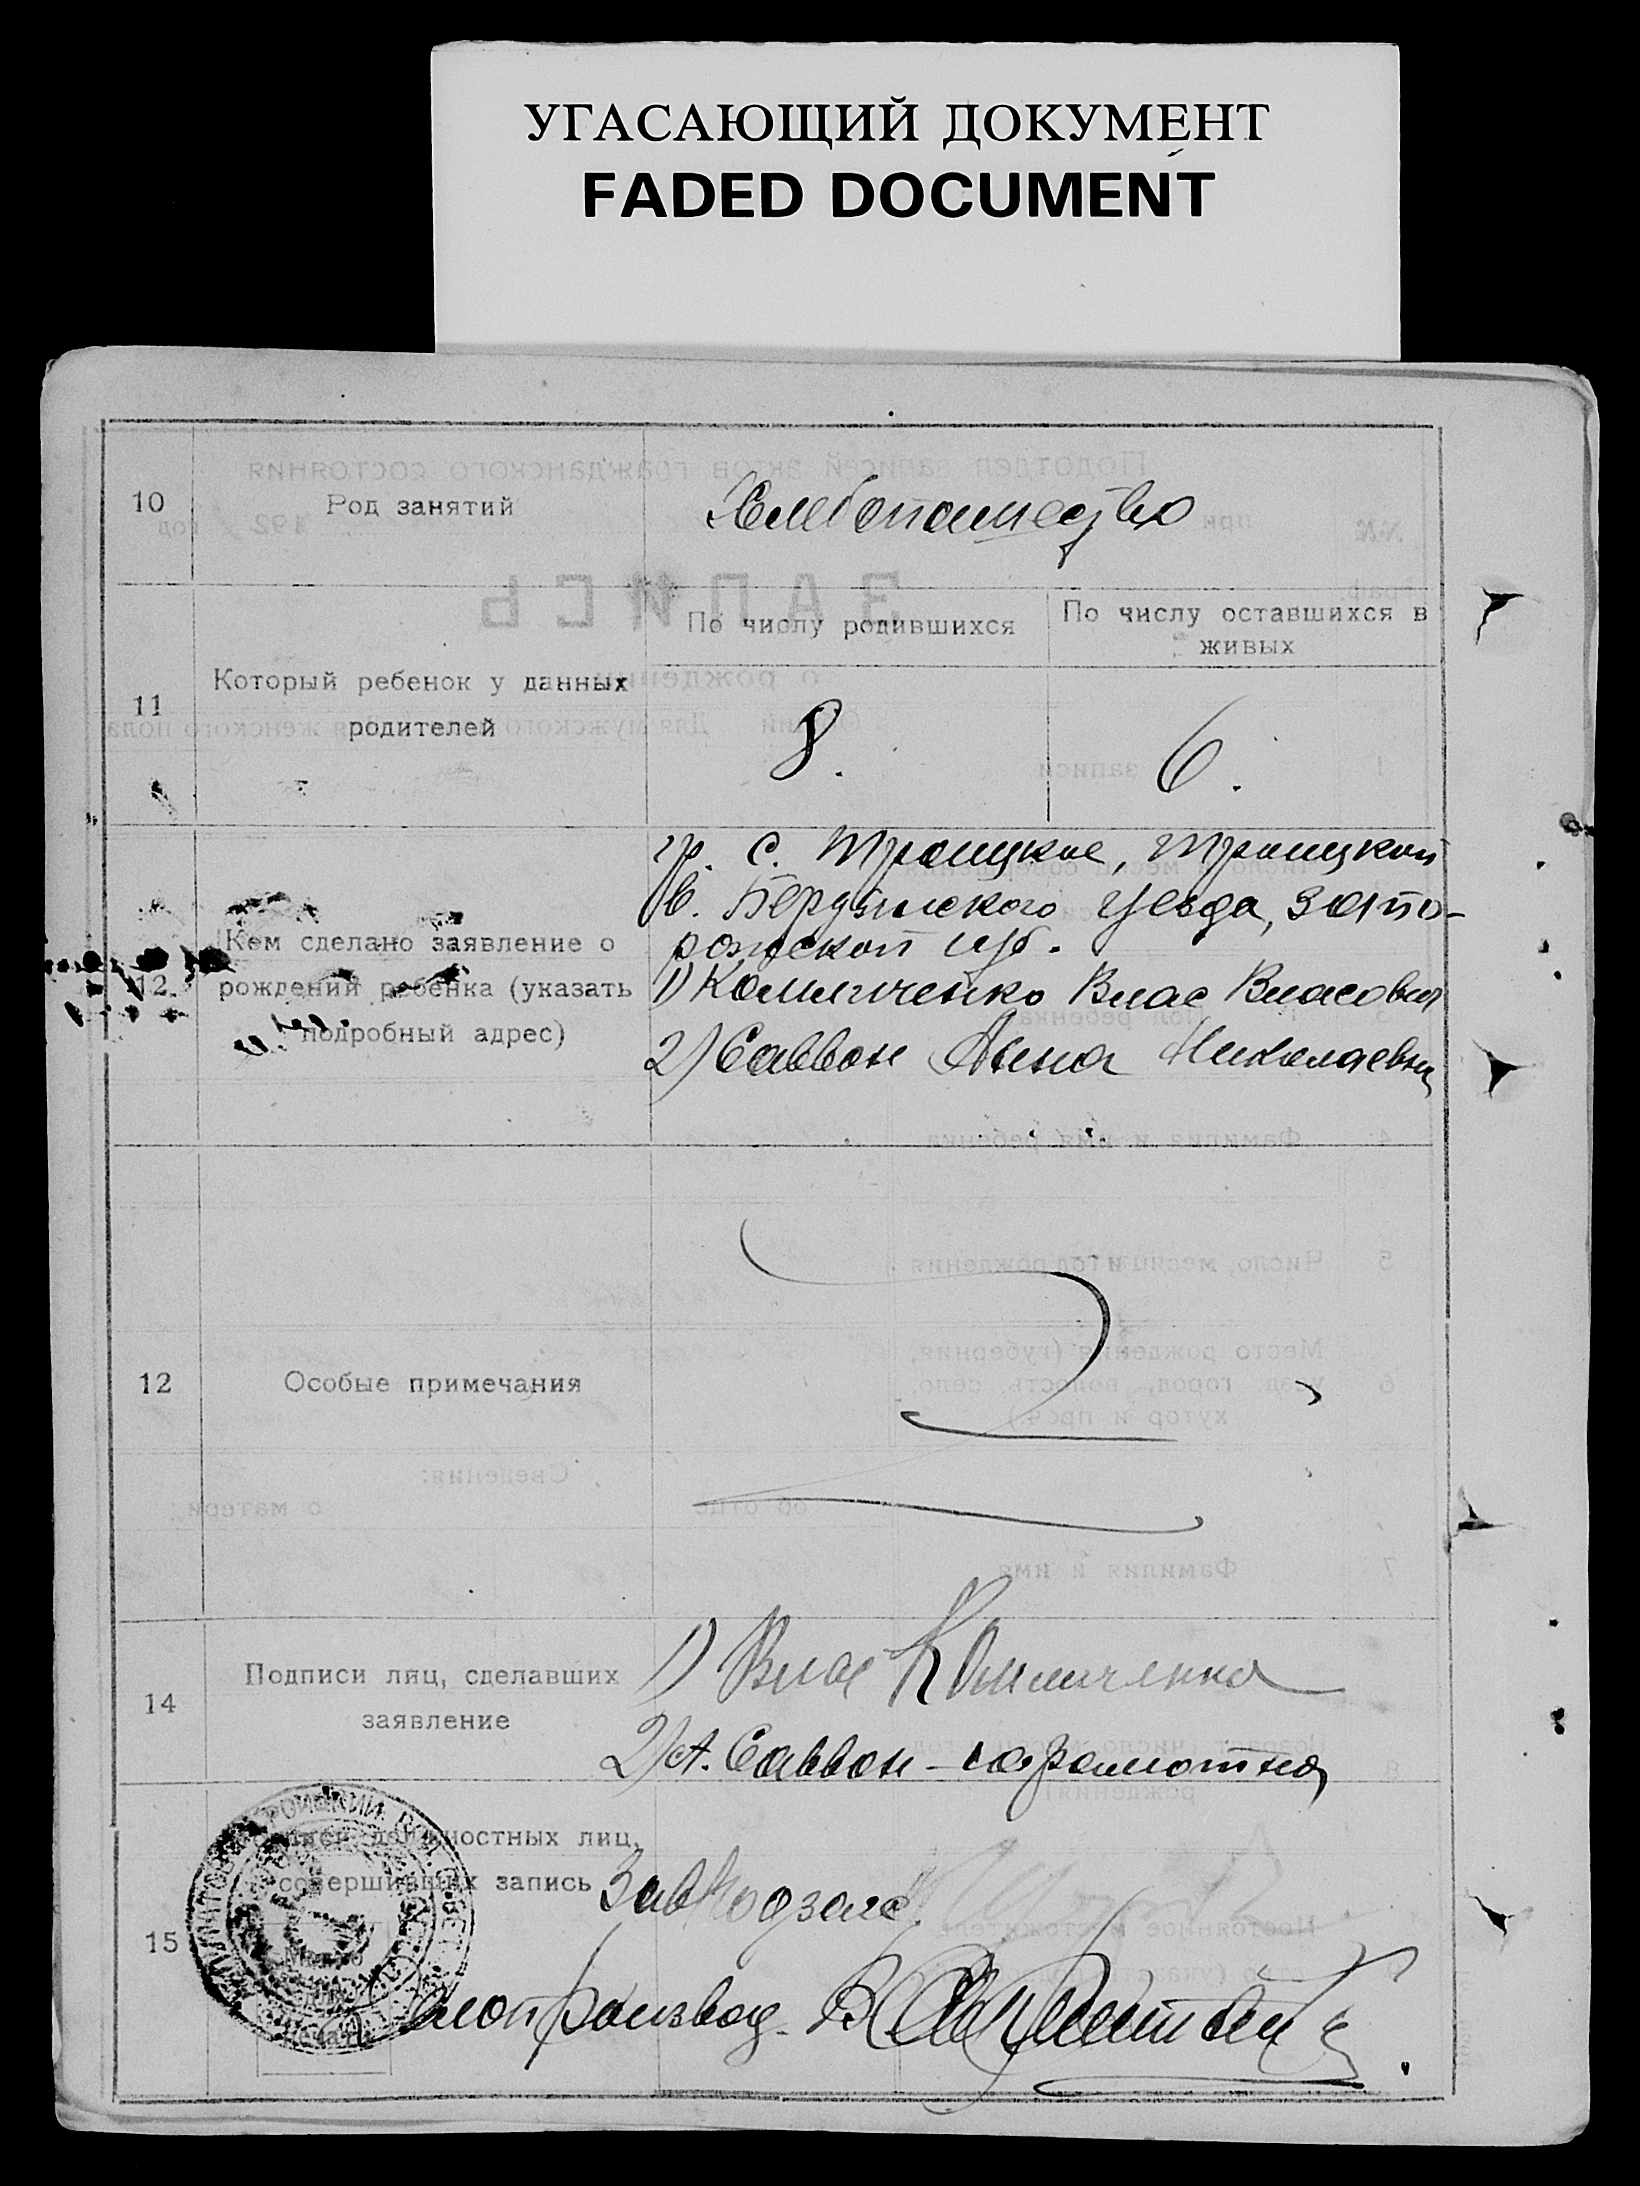 УГАСАЮЩИЙ ДОКУМЕНТ
FADED DOCUMENT
10
Род занятий
Хлебопашество
11
Который ребенок у данных
родителей
По числу родившихся
По числу оставшихся в
живых
8.
6.
12
Кем сделано заявление о
рождении ребенка (указать
подробный адрес)
гр. с. Троицкое, Троицкой
в. Бердянского уезда, Запо-
рожской губ.
1) Влас Власович
2) Саввон Анна Николаевна
12
Особые примечания
14
Подписи лиц, сделавших
заявление
1) Влас
2) А. Саввон -
15
должностных лиц,
совершивших запись
Завподзагс
Делопроизвод.